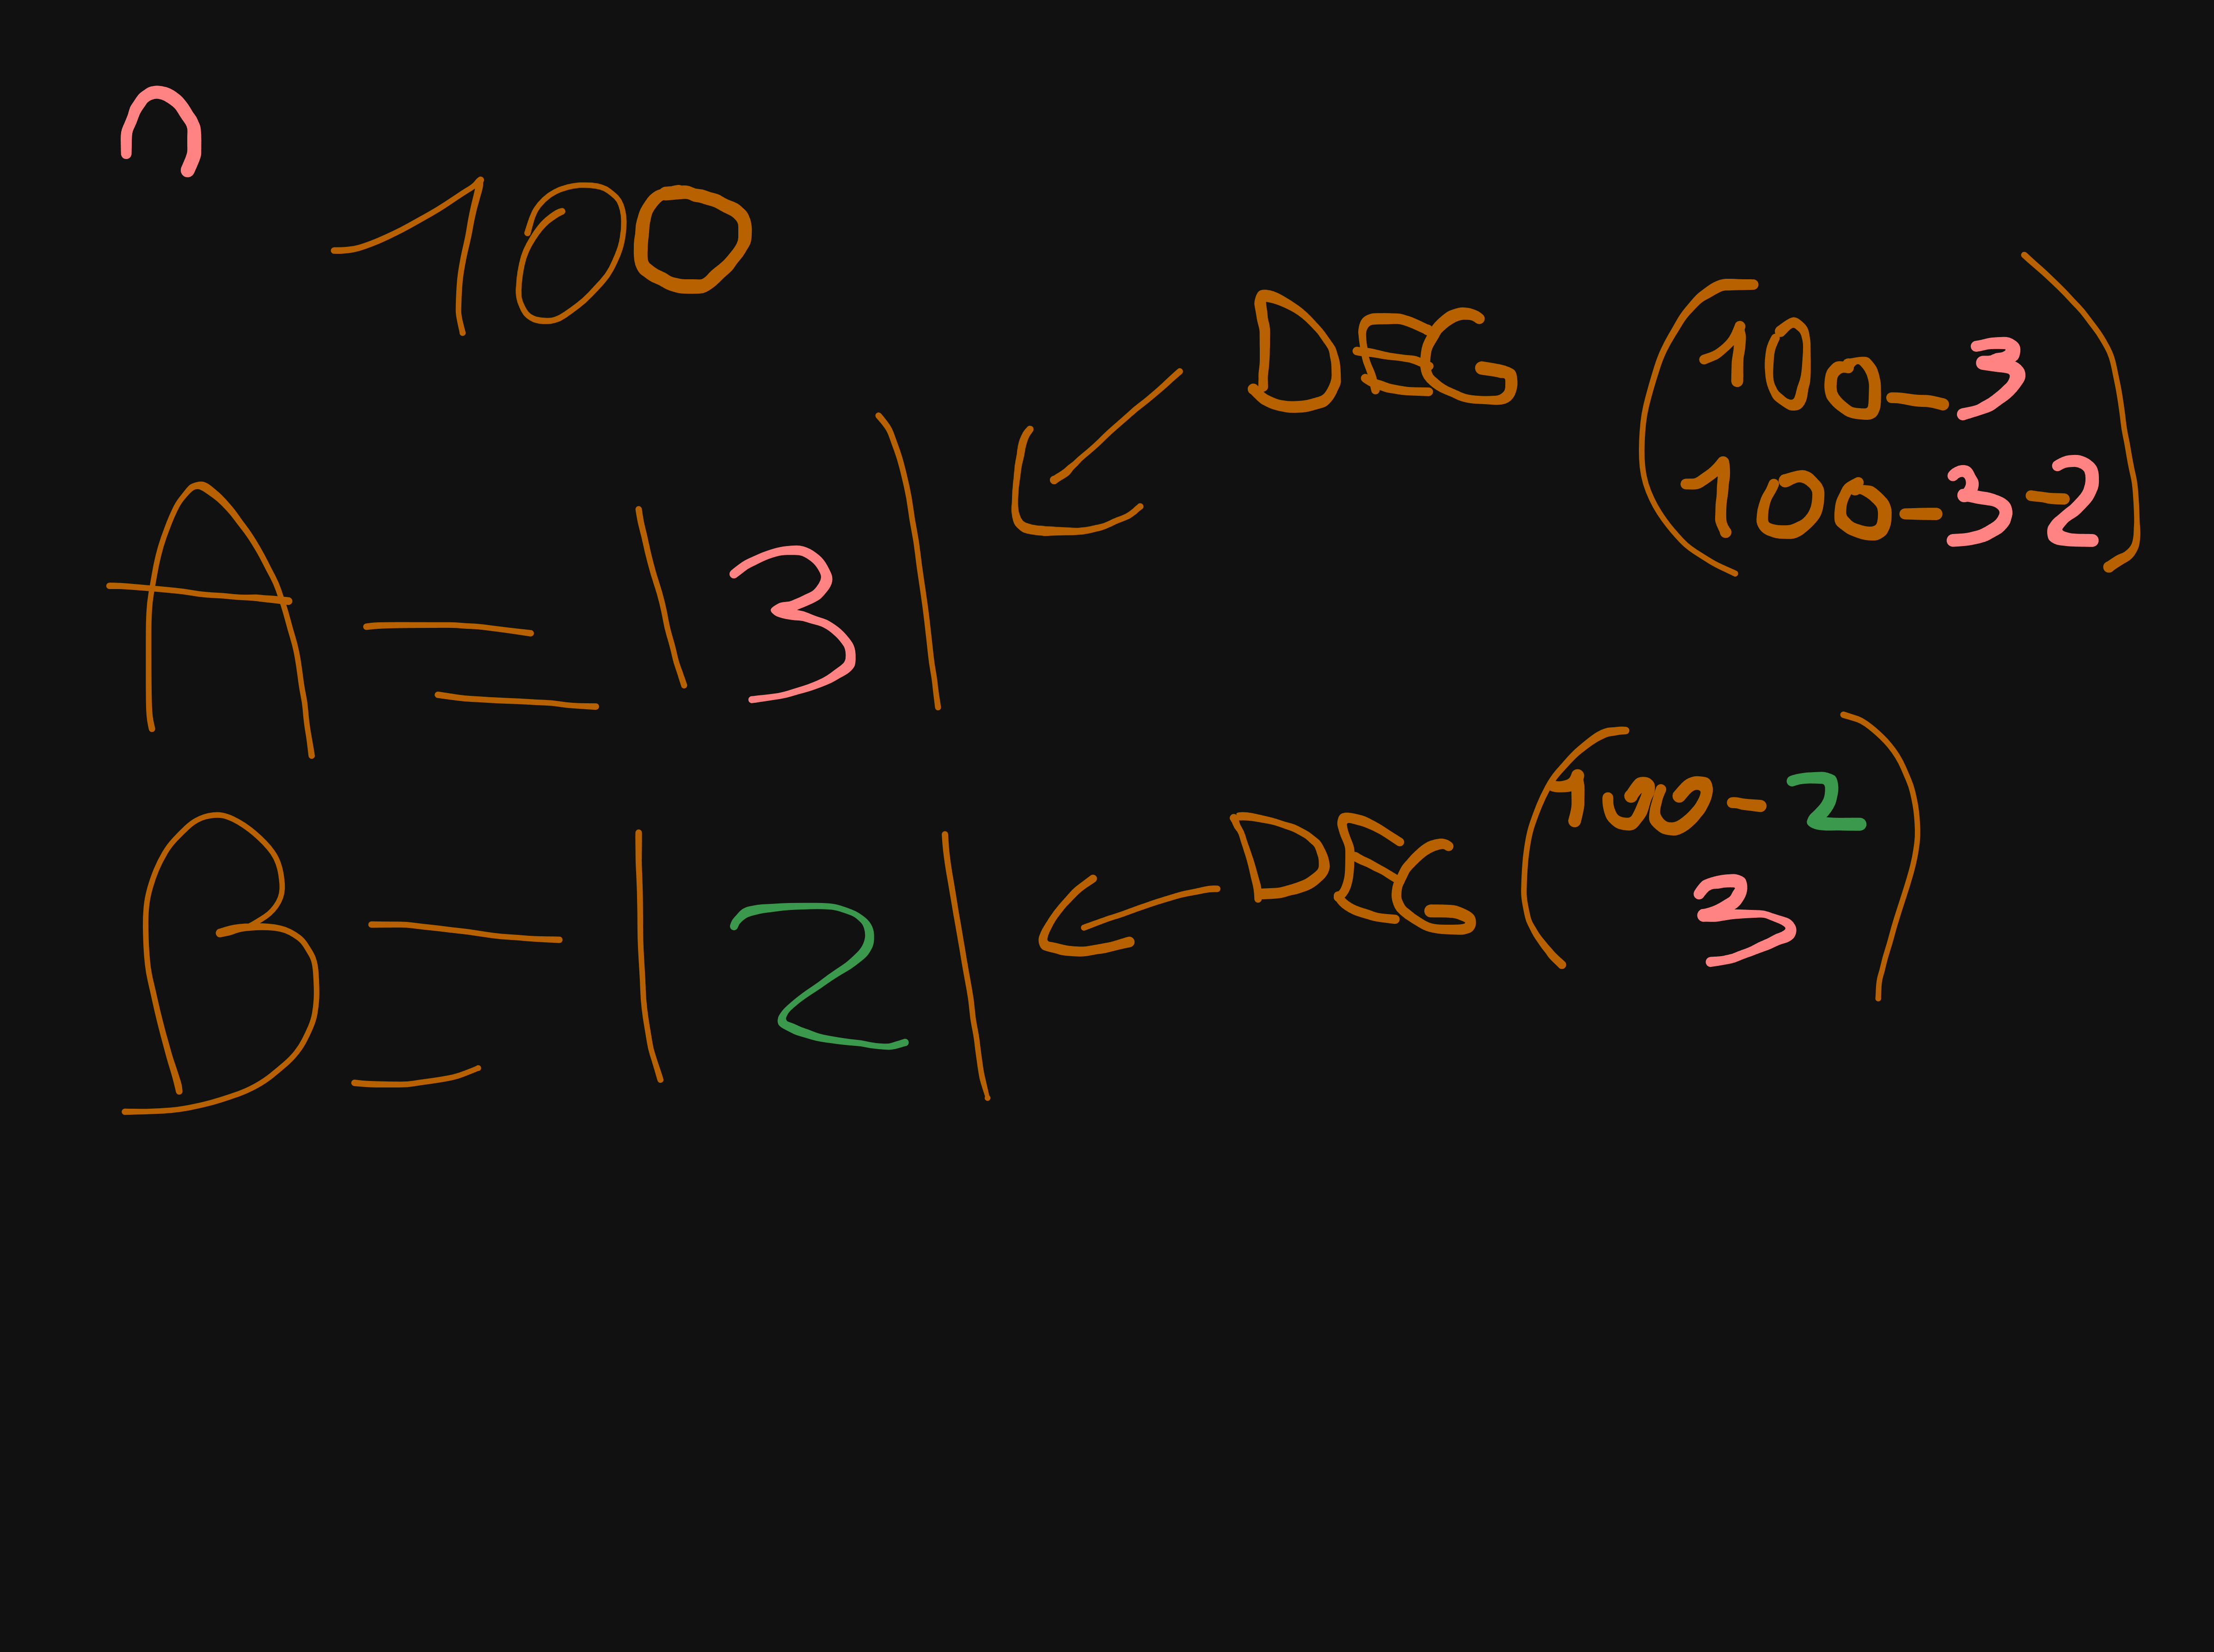 ∩
100
A = |3| ← DEG (100-3
100-3-2)
B = |2| ← DEG (100-2
3)